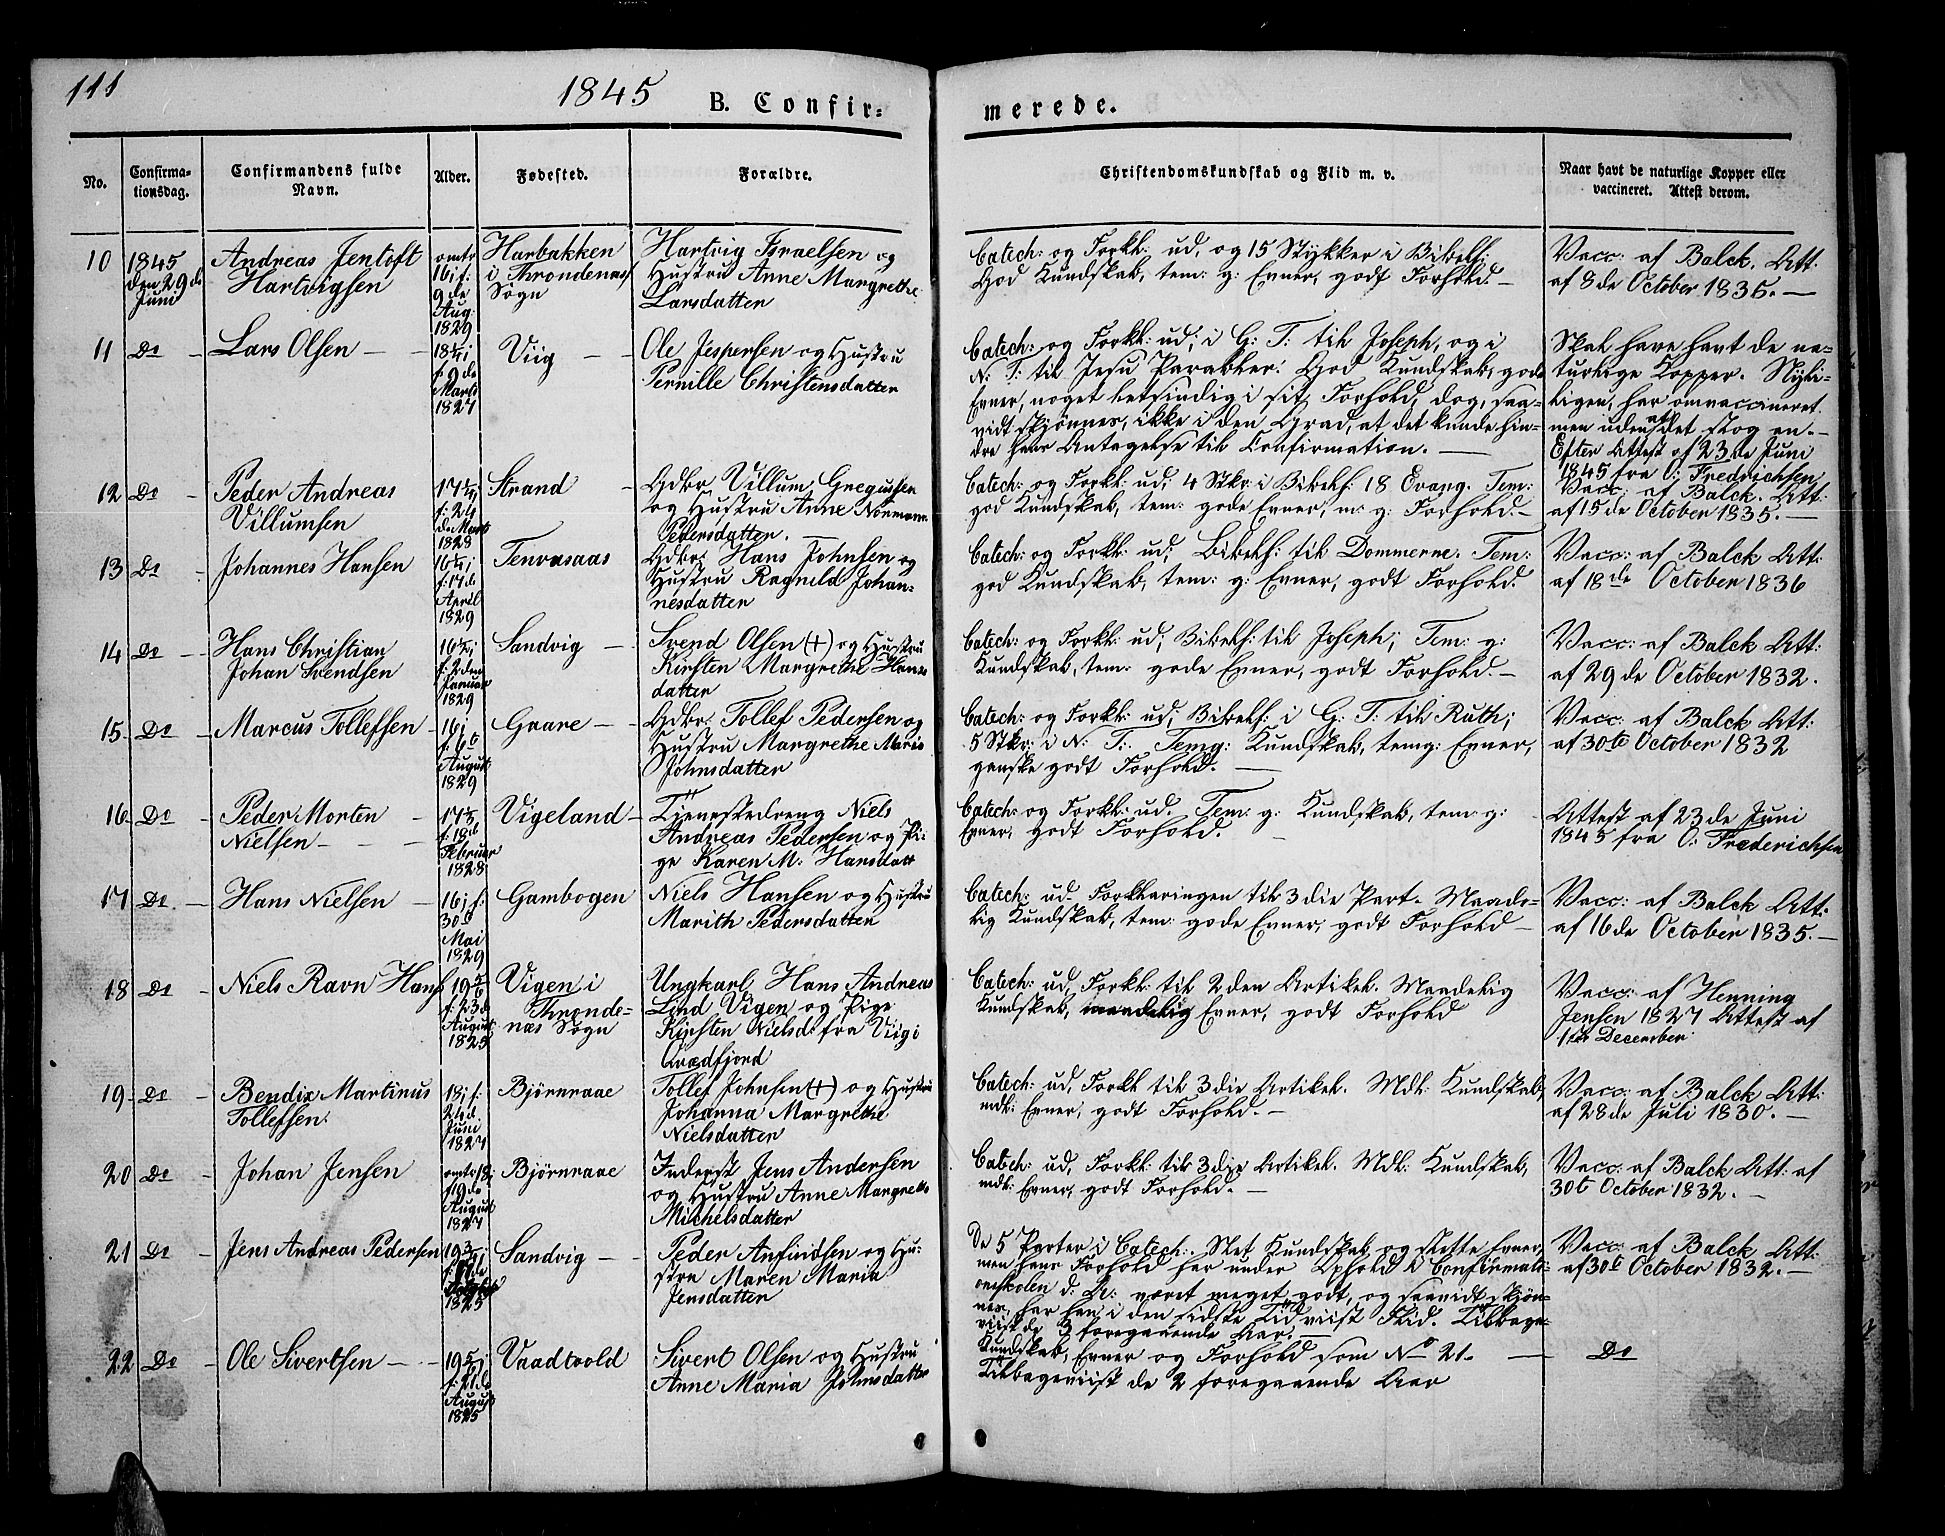 111
1845
B. Confir=
merede.
No.
Confirma-
tionsdag.
Confirmandens fulde
Navn.
Alder.
Fødested.
Forældre.
Christendomskundskab og Flid m. v.
Naar havt de naturlige Kopper eller
vaccineret. Attest derom.
10
1845
den 29de
Juni
Andreas Jentoft
Hartvigsen
omtr
16 j f.
9 de
Aug:
1829
Harbakken
i Throndenæs
Sogn
Hartvig Israelsen og
Hustru Anne Margrethe
Larsdatter
Catech: og Forkl: ud, og 15 Stykker i Bibelh:
God Kundskab, tem: g: Evner, godt Forhold. —
Vacc: af Balck. Att:
af 8 de October 1835. —
11
Do —
Lars Olsen — —
f. 9 de
Marts
1827
Viig — —
Ole Jespersen og Hustru
Pernille Christensdatter
Catech: og Forkl: ud; i G: T: til Joseph, og i
N: T: til Jesu Parabler. God Kundskab, gode
Evner, noget letsindig i sit Forhold, dog, saa=
vidt skjønnes, ikke i den Grad, at det kunde hin-
dre hans Antagelse til Confirmation. —
Skal have havt de na=
turlige Kopper. Nyli=
ligen, har omvaccineret
men uden at det slog an. —
Efter Attest af 23 de Juni
1845 fra O: Fredrichsen
12
Do —
Peder Andreas
Villumsen
f: 24
de Marts
1828
Strand —
Gdbr. Villum Gregussen
og Hustru Anne Normann
Pedersdatter. —
Catech: og Forkl: ud, 4 Stkr: i Bibelh: 18 Evang. Tem:
god Kundskab, tem: gode Evner, m: g: Forhold. —
Vacc: af Balck. Att:
af 15 de October 1835. —
13
Do
Johannes Hansen
f: 17 de
April
1829
Tenvasaas
Gdbr: Hans Johnsen og
Hustru Ragnild Johan-
nesdatter
Catech: og Forkl: ud, Bibelh: til Dommerne. Tem:
god Kundskab, tem: g: Evner, godt Forhold.
Vacc: af Balck Att:
af 18de October 1836
14
Do —
Hans Christian
Johan Svendsen
f: 2 den
Januar
1829
Sandvig —
Svend Olsen (+) og Hustru
Kirsten Margrethe Hans
datter
Catech: og Forkl: ud, Bibelh: til Joseph; Tem: g:
Kundskab, tem: gode Evner, godt Forhold. —
Vacc: af Balck Att:
af 29 de October 1832.
15
Do —
Marcus Tollefsen —
16 j
f: 6 t
August
1829
Gaare —
Gdbr. Tollef Pedersen og
Hustru Margrethe Maria
Johnsdatter
Catech: og Forkl: ud; Bibelh: i G: T: til Ruth;
5 Stkr: i N: T:. Temg: Kundskab, temg: Evner,
ganske godt Forhold. —
Vacc: af Balck Att:
af 30te October 1832
16
Do —
Peder Morten —
Nielsen — —
f. 18 d
Februar
1828
Vigeland —
Tjenestedreng Niels
Andreas Pedersen og Pi-
ge Karen M: Hansdatt
Catech: og Forkl: ud. Tem: g: Kundskab, tem: g:
Evner, godt Forhold. —
Attest af 23 de Juni
1845 fra O: Fræderichsen
17
Do —
Hans Nielsen —
16 j f:
30 t
Mai
1829
Gambogen
Niels Hansen og Hustru
Marith Pedersdatter
Catech: ud. Forklaringen til 3 die Part. Maade-
lig Kundskab, tem: gode Evner, godt Forhold —
Vacc: af Balck Att.
af 16 de October 1835. —
18
Do —
Niels Ravn Hans
f: 23 d
August
1825
Vigen i
Thronde-
næs Sogn
Ungkarl Hans Andreas
Lind Vigen og Pige
Kirsten Nielsd: fra Viig i
Qvædfjord
Catech: ud, Forkl: til 2 den Artikel. Maadelig
Kundskab, maadelig Evner, godt Forhold
Vacc: af Henning
Jensen 1827 Attest af
1ste December
19
Do —
Bendix Martinus
Tollefsen.
18 j f:
24 d.
Juni
1827
Bjørnraae
Tollef Johnsen (+) og Hustru
Johanna Margrethe
Nielsdatter
Catech: ud, Forkl til 3 die Artikel. Mdl: Kundskab,
mdl: Evner, godt Forhold. —
Vacc: af Balck Att:
af 28 de Juli 1830. —
20
Do —
Johan Jensen
omtr 18 j
f 19 de
August
1827
Bjørnraae
Inderst Jens Andersen
og Hustru Anne Margrethe
Michelsdatter
Catech: ud, Forkl: til 3 die Artikel. Mdl: Kundskab,
mdl: Evner, godt Forhold. —
Vacc: af Balck Att: af
30 t October 1832. —
21
Do —
Jens Andreas Pedersen
1825
Sandvig —
Peder Anfindsen og Hu-
stru Maren Maria
Jensdatter
De 5 Parter i Catech:. Slet Kundskab og slette Evner,
men hans Forhold har under Ophold i Confirmati-
onsskolen d: A: været meget godt, og saavidt skjøn-
nes, har han i den sidste Tid viist Flid. Tilbage-
viist de 3 foregaaende Aar. —
Vacc: af Balck Att:
af 30 t October 1832. —
22
Do —
Ole Sivertsen — —
f: 21 de
August
1825
Vaadtvold
Sivert Olsen og Hustru
Anne Maria Johnsdatter
Kundskab, Evner og Forhold som No 21. —
Tilbageviist de 2 foregaaende Aar
Do